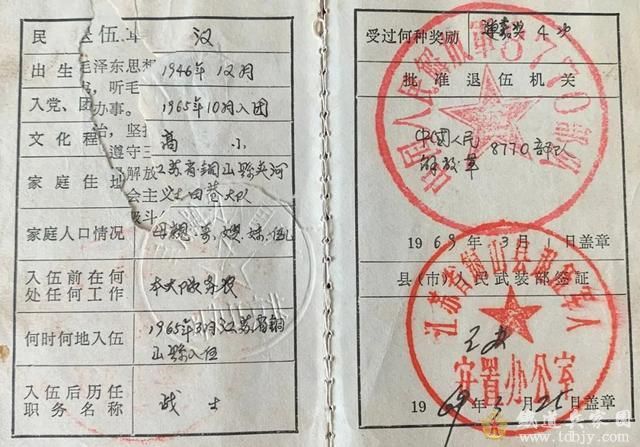 民 汉
出生 1946年12月
入党、团 1965年10月入团
文化程 高小
家庭住 江苏省铜山縣夹河
田巷大队
家庭人口情况 母親.哥.嫂.妹.
入伍前在何
处任何工作 本大队务农
何时何地入伍 1965年3月江苏省铜
山縣入伍
入伍后历任
职务名称 战士
退伍
毛泽东思想
，听毛
办事。
治，坚持
遵守三
解放
会主义
斗
受过何种奖励 嘉奖4次
批准退伍机关
中國人民
解放军 8770部队
1969年3月1日盖章
中国人民解放军8770部队
县(市)人民武装部签证
江苏省铜山县
安置办公室
1969年3月25日盖章
铁道兵家园
www.tdbjy.com